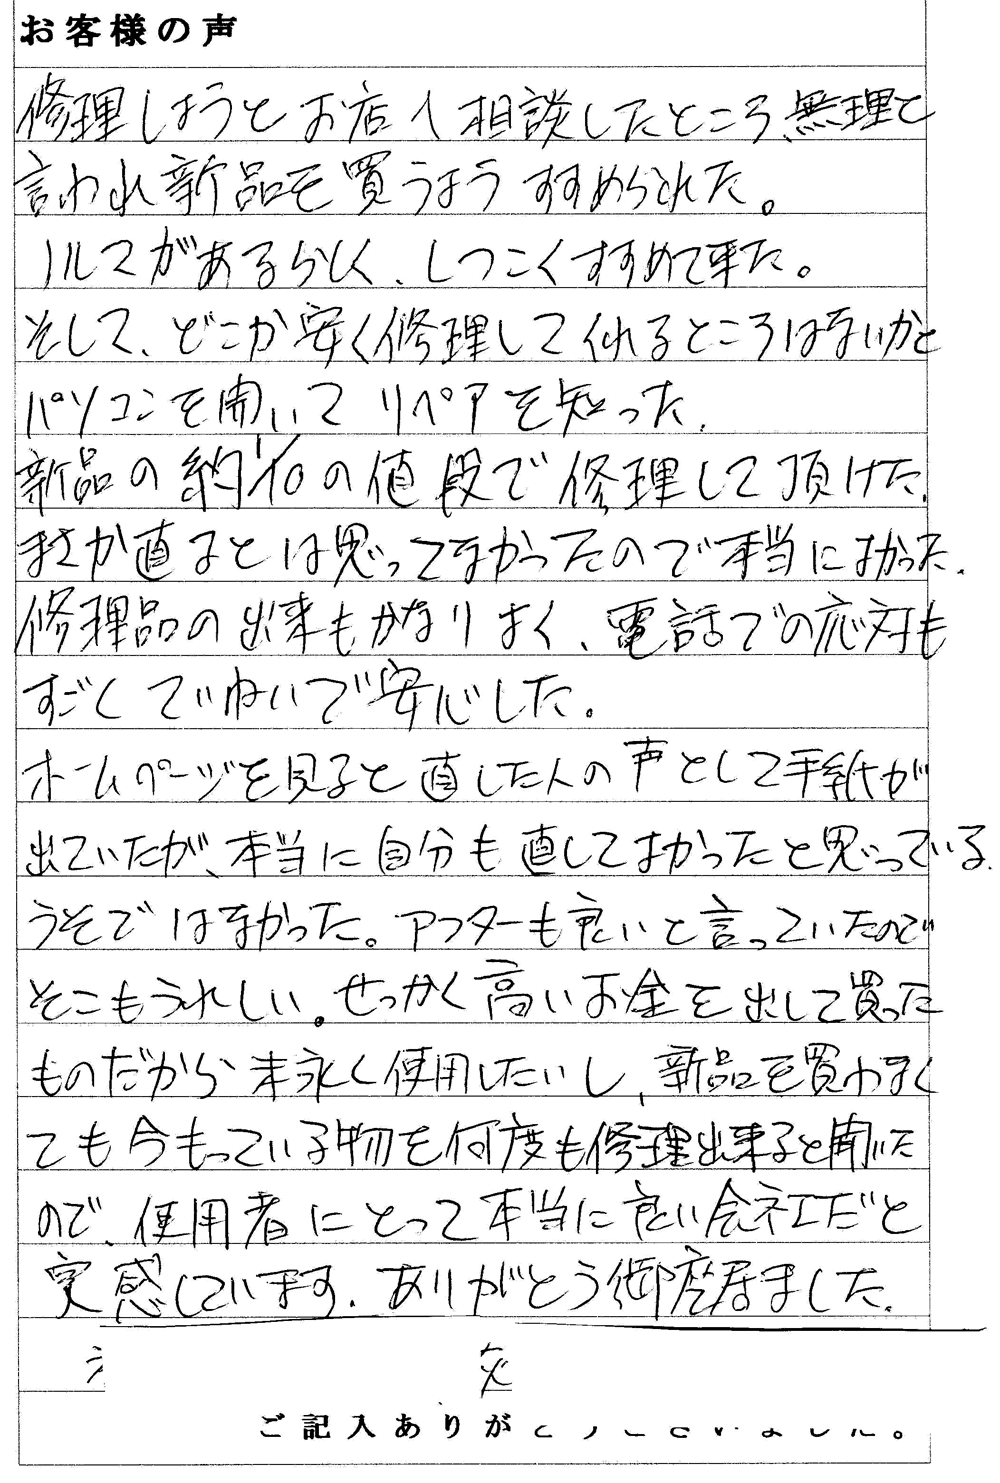 お客様の声
修理しようとお店へ相談したところ、無理と
言われ新品を買うようすすめられた。
ノルマがあるらしく、しつこくすすめて来た。
そして、どこか安く修理して作れるところはないかと
パソコンを開いてリペアを知った。
新品の約1/10の値段で修理して頂けた。
まさか直るとは思ってなかったので本当によかった。
修理品の出来もかなりよく、電話での応対も
すごくていねいで安心した。
ホームページを見ると直した人の声として手紙が
出ていたが、本当に自分も直してよかったと思っている。
うそではなかった。アフターも良いと言っていたので
そこもうれしい。せっかく高いお金を出して買った
ものだから末永く使用したいし、新品を買わなく
ても今もっている物を何度も修理出来ると聞いた
ので、使用者にとって本当に良い会社だと
実感しています。ありがとう御座居ました。
ご記入ありが